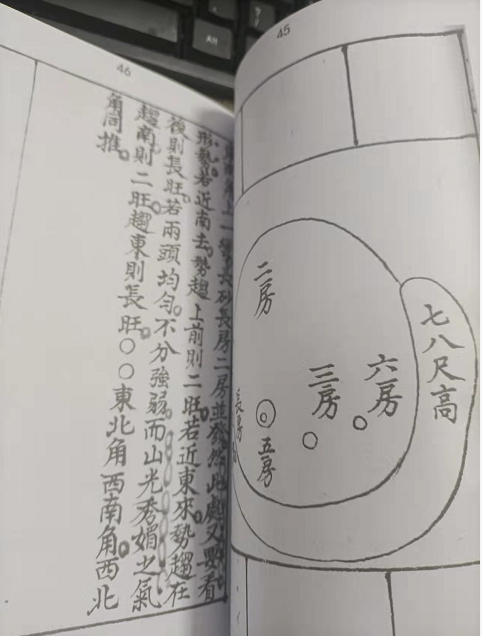 45
七八尺高
六房
三房
五房
長房
二房
46
上一彎長砂長房二房並發然此處又要看
形勢。若近南去。勢趨上前則二旺。若近東來。勢趨在
後則長旺。若兩頭均勻。不分強弱。而山光秀媚之氣
趨南則二旺。趨東則長旺。○○東北角西南角。西北
角同推。